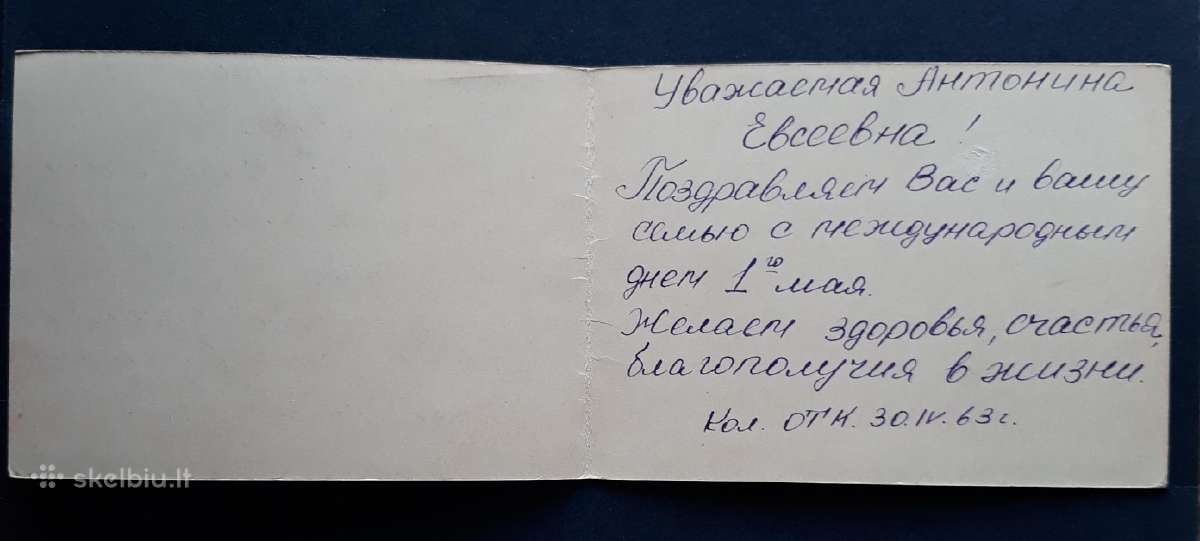 Уважаемая Антонина
Евсеевна!
Поздравляем Вас и вашу
семью с международным
днем 1го мая.
Желаем здоровья, счастья,
благополучия в жизни.
Кол. ОТК. 30.IV.63г.
skelbiu.lt